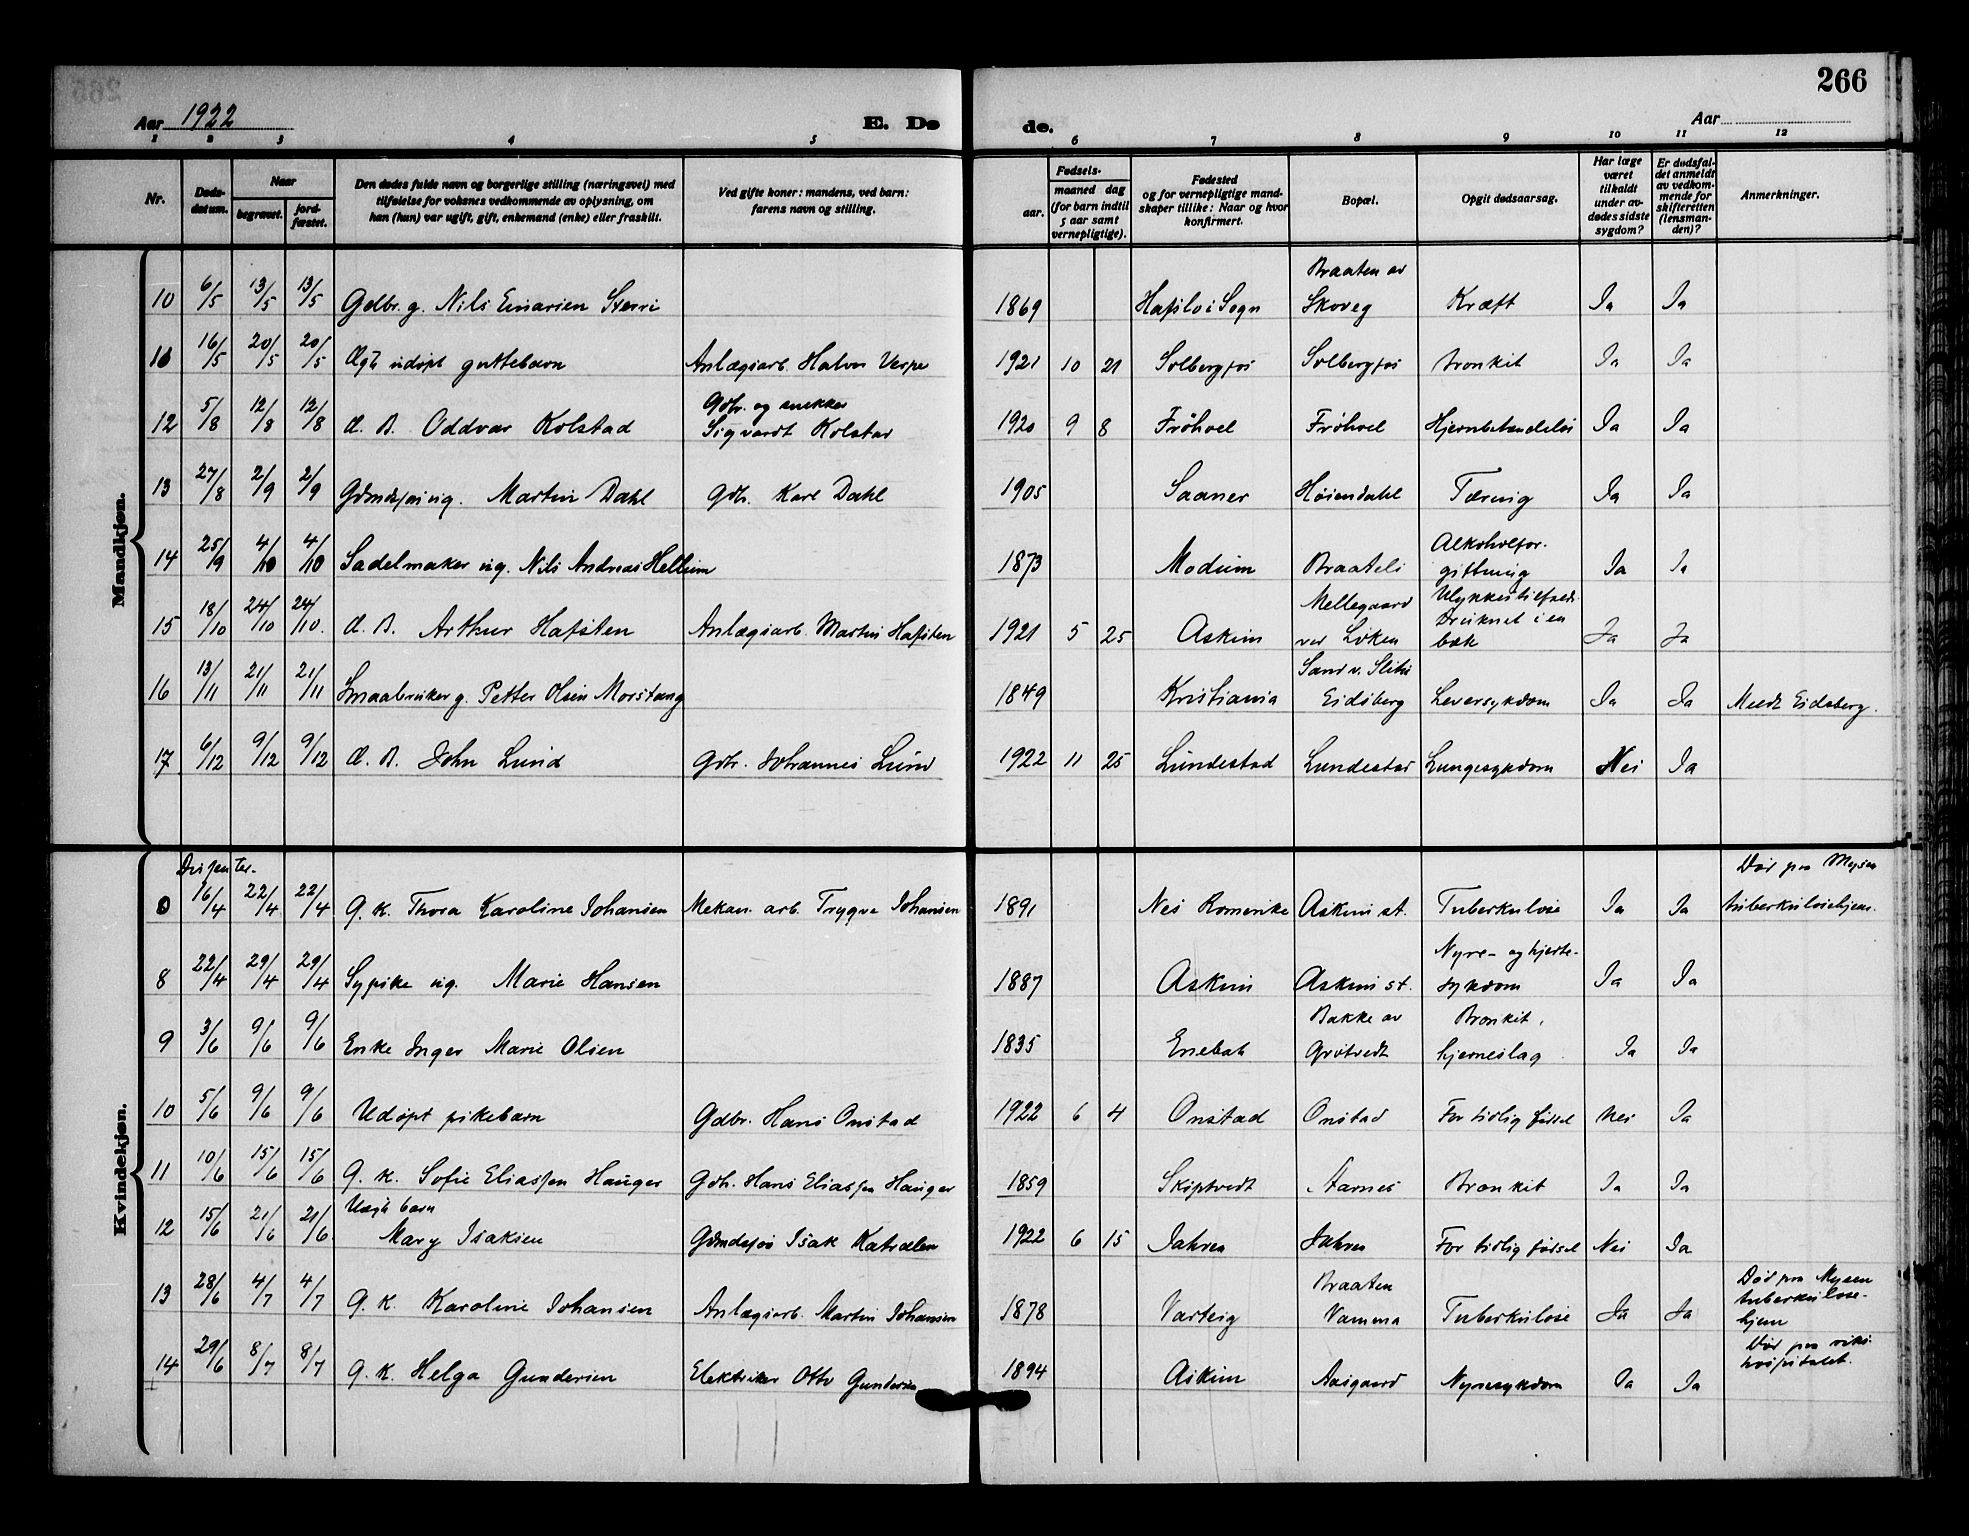 266
Aar 1922
E. Dø
de.
Aar
1 2 3 4 5 6 7 8 9 10 11 12
Nr.
Døds-
datum.
Naar
begravet.
jord-
fæstet.
Den dødes fulde navn og borgerlige stilling (næringsvei) med
tilføielse for voksnes vedkommende av oplysning, om
han (hun) var ugift, gift, enkemand (enke) eller fraskilt.
Ved gifte koner: mandens, ved barn:
farens navn og stilling.
Fødsels-
aar.
maaned dag
(for barn indtil
5 aar samt
vernepligtige).
Fødested
og for vernepligtige mand-
skaper tillike: Naar og hvor
konfirmert.
Bopæl.
Opgit dødsaarsag.
Har læge
været
tilkaldt
under av-
dødes sidste
sygdom?
Er dødsfal-
det anmeldt
av vedkom-
mende for
skifteretten
(lensman-
den)?
Anmerkninger.
Mandkjøn.
Braaten av
10 6/5 13/5 13/5 Gdbr. g. Nils Einarsen Sterri 1869 Hafslo i Sogn Skoveg Kræft Ja Ja
11 16/5 20/5 20/5 Ægte udøpt guttebarn Anlægsarb. Halvor Vespe 1921 10 21 Solbergfos Solbergfos bronkit Ja Ja
Gdbr. og snekker
12 5/8 12/8 12/8 Æ. B. Oddvar Kolstad Sigvardt Kolstad 1920 9 8 Frøhoel Frøhoel Hjernebetændelse Ja Ja
13 27/8 2/9 2/9 Gdmdssøn ug. Martin Dahl Gdb. Karl Dahl 1905 Saaner Høiendahl Tæring Ja Ja
Alkoholfor-
14 25/9 4/10 4/10 Sadelmaker ug. Nils Andreas Hellum 1873 Modum Braateli giftning Ja Ja
Mellegaard Ulykkestilfælde.
Druknet i en
15 18/10 24/10 24/10. Æ. B. Arthur Hafsten Anlægsarb. Martin Hafsten 1921 5 25 Askim ved Løken bæk Ja Ja
Sand v. Slitu
16 13/11 21/11 21/11 Smaabruker g. Petter Olsen Morstang 1849 Kristiania Eidsberg Leversykdom Ja Ja Meldt Eidsberg.
17 6/12 9/12 9/12 Æ. B. John Lund Gdbr. Johannes Lund 1922 11 25 Lundestad Lundestad Lungesykdom Nei Ja
Kvindekjøn.
Dissenter. Død paa Mysen
0 16/4 22/4 22/4 G. K. Thora Karoline Johansen Mekan. arb. Trygve Johansen 1891 Nes Romerike Askim st. Tuberkulose Ja Ja tuberkulosehjem.
Nyre- og hjerte-
8 22/4 29/4 29/4 Sypike ug. Marie Hansen 1887 Askim Askim st. sykdom Ja Ja
Bakke av Bronkit,
9 3/6 9/6 9/6 Enke Inger Marie Olsen 1835 Enebak Grøtvedt hjerneslag Ja Ja
10 5/6 9/6 9/6 Udøpt pikebarn Gdbr. Hans Onstad 1922 6 4 Onstad Onstad For tidlig fødsel Nei Ja
11 10/6 15/6 15/6 G. K. Sofie Eliassen Hauger Gdb. Hans Eliassen Hauger 1859 Skiptvedt Aarnes Bronkit Ja Ja
Uægte barn
12 15/6 21/6 21/6 Mary Isaksen Gdmdssøn Isak Katralen 1922 6 15 Jahren Jahren For tidlig fødsel Nei Ja
Braaten Død paa Mysen
tuberkulose-
13 28/6 4/7 4/7 G. K. Karoline Johansen Anlægsarb. Martin Johansen 1878 Varteig Vamma Tuberkulose Ja Ja hjem
Død paa riks-
hospitalet.
14 29/6 8/7 8/7 G. K. Helga Gundersen Elektriker Otto Gundersen 1894 Askim Aasgaard Nyresykdom Ja Ja